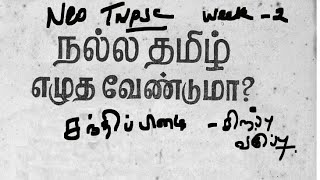 Neo TNPSC Week - 2
நல்ல தமிழ்
எழுத வேண்டுமா?
சந்திப்பிழை - சிறப்பு
வகுப்பு